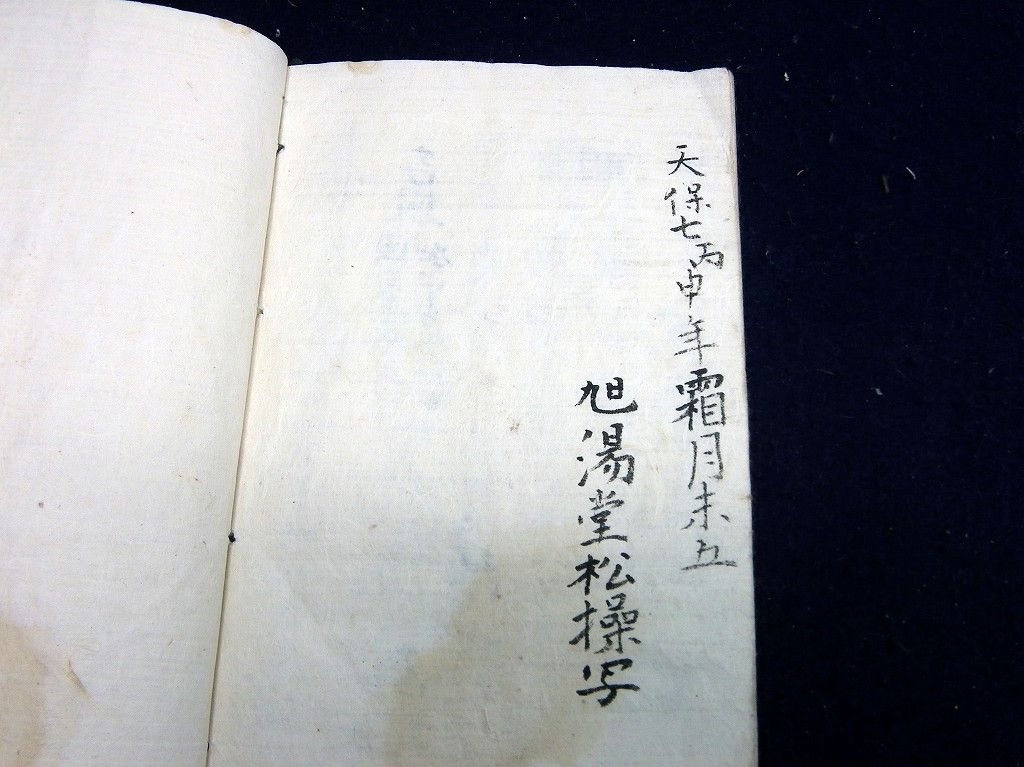 天保七丙申年霜月末五
旭湯堂松操写